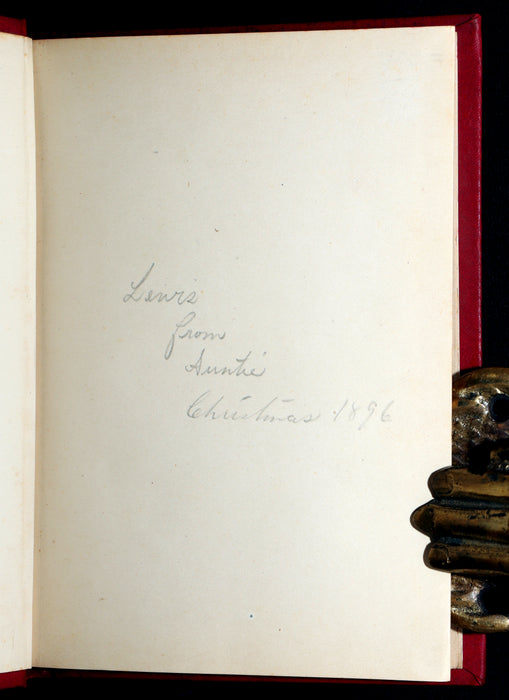 Lewis
from
Auntie
Christmas 1896